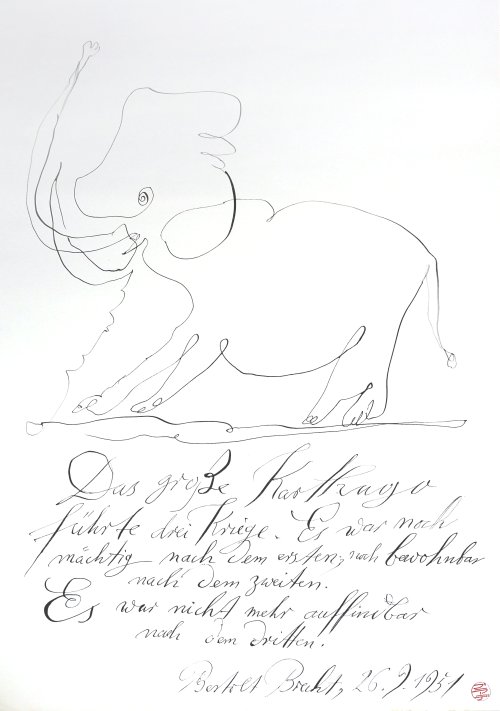 Das große Karthago
führte drei Kriege. Es war noch
mächtig nach dem ersten, noch bewohnbar
nach dem zweiten.
Es war nicht mehr auffindbar
nach dem dritten.
Bertolt Brecht, 26.9.1951